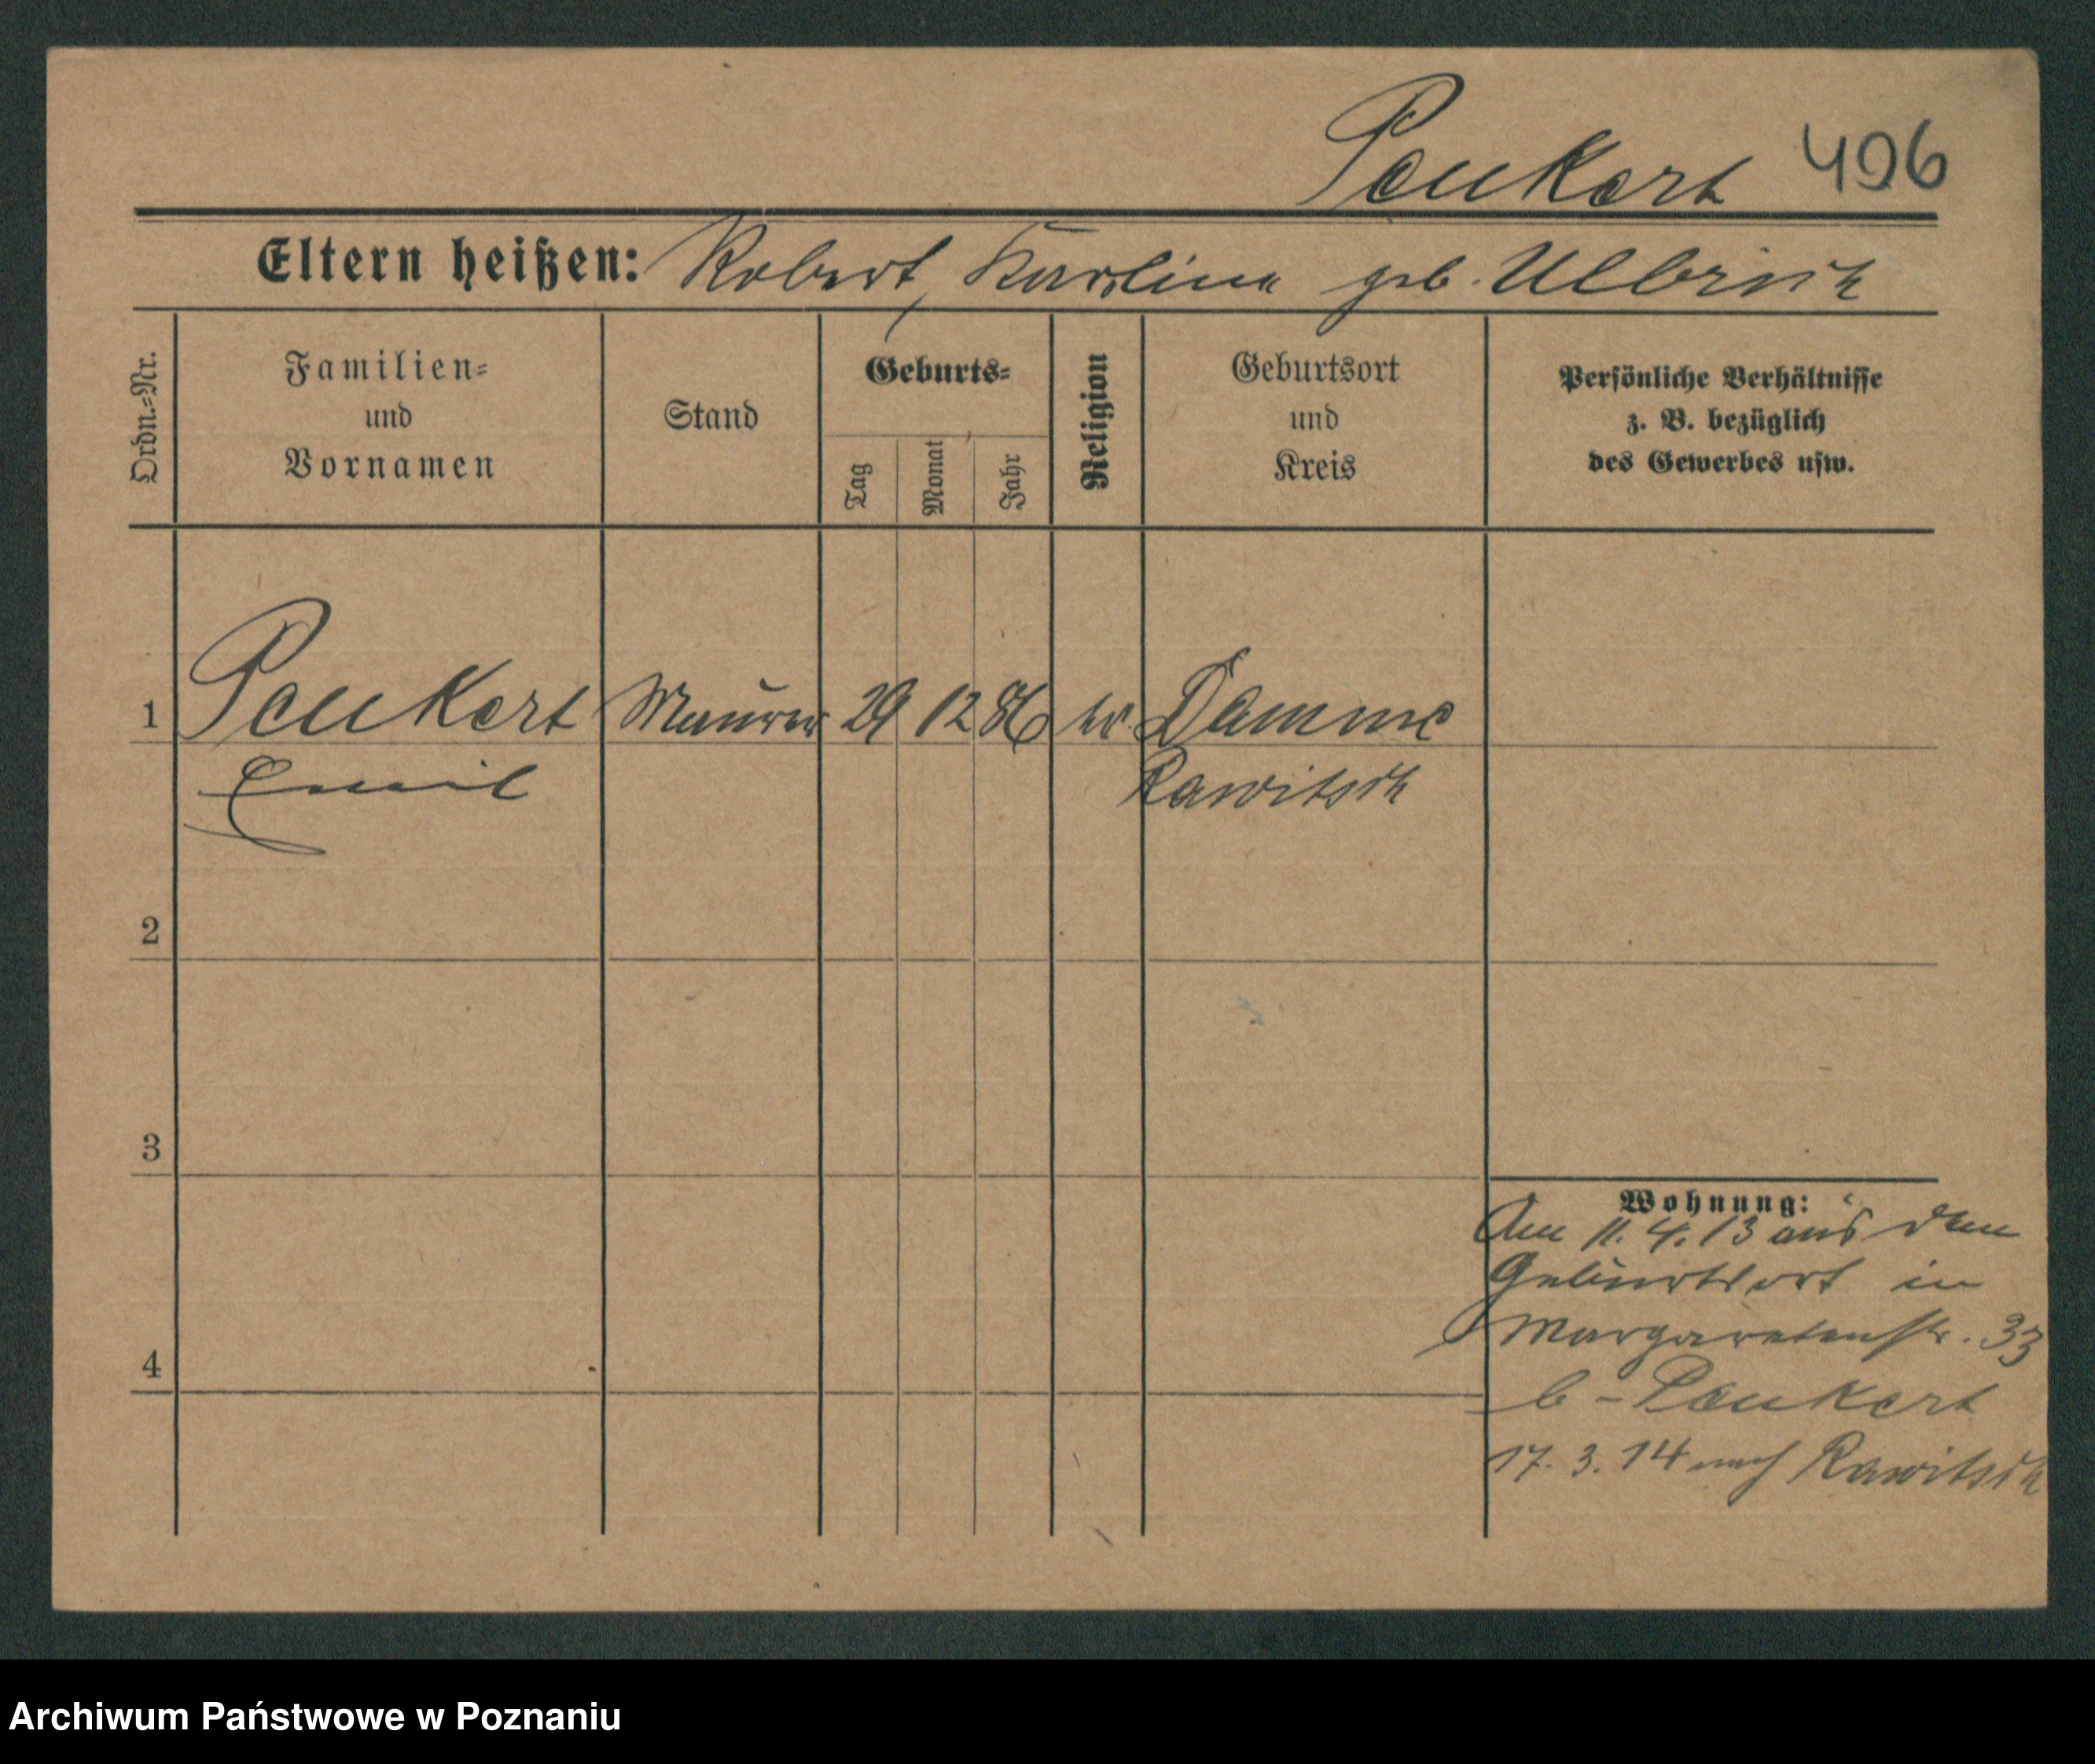 Peukert 496
Eltern heißen: Robert, Karoline geb. Ulbrich
Ordn.-Nr.
Familien-
und
Vornamen
Stand
Geburts-
Tag
Monat
Jahr
Religion
Geburtsort
und
Kreis
Persönliche Verhältnisse
z. B. bezüglich
des Gewerbes usw.
1 Peukert Maurer 29 12 86 ev. Damme
Emil Rawitsch
2
3
4
Wohnung:
Am 11. 4. 13 aus dem
Geburtsort in
Margaretenstr. 33
b- Peukert
17. 3. 14 nach Rawitsch
Archiwum Państwowe w Poznaniu